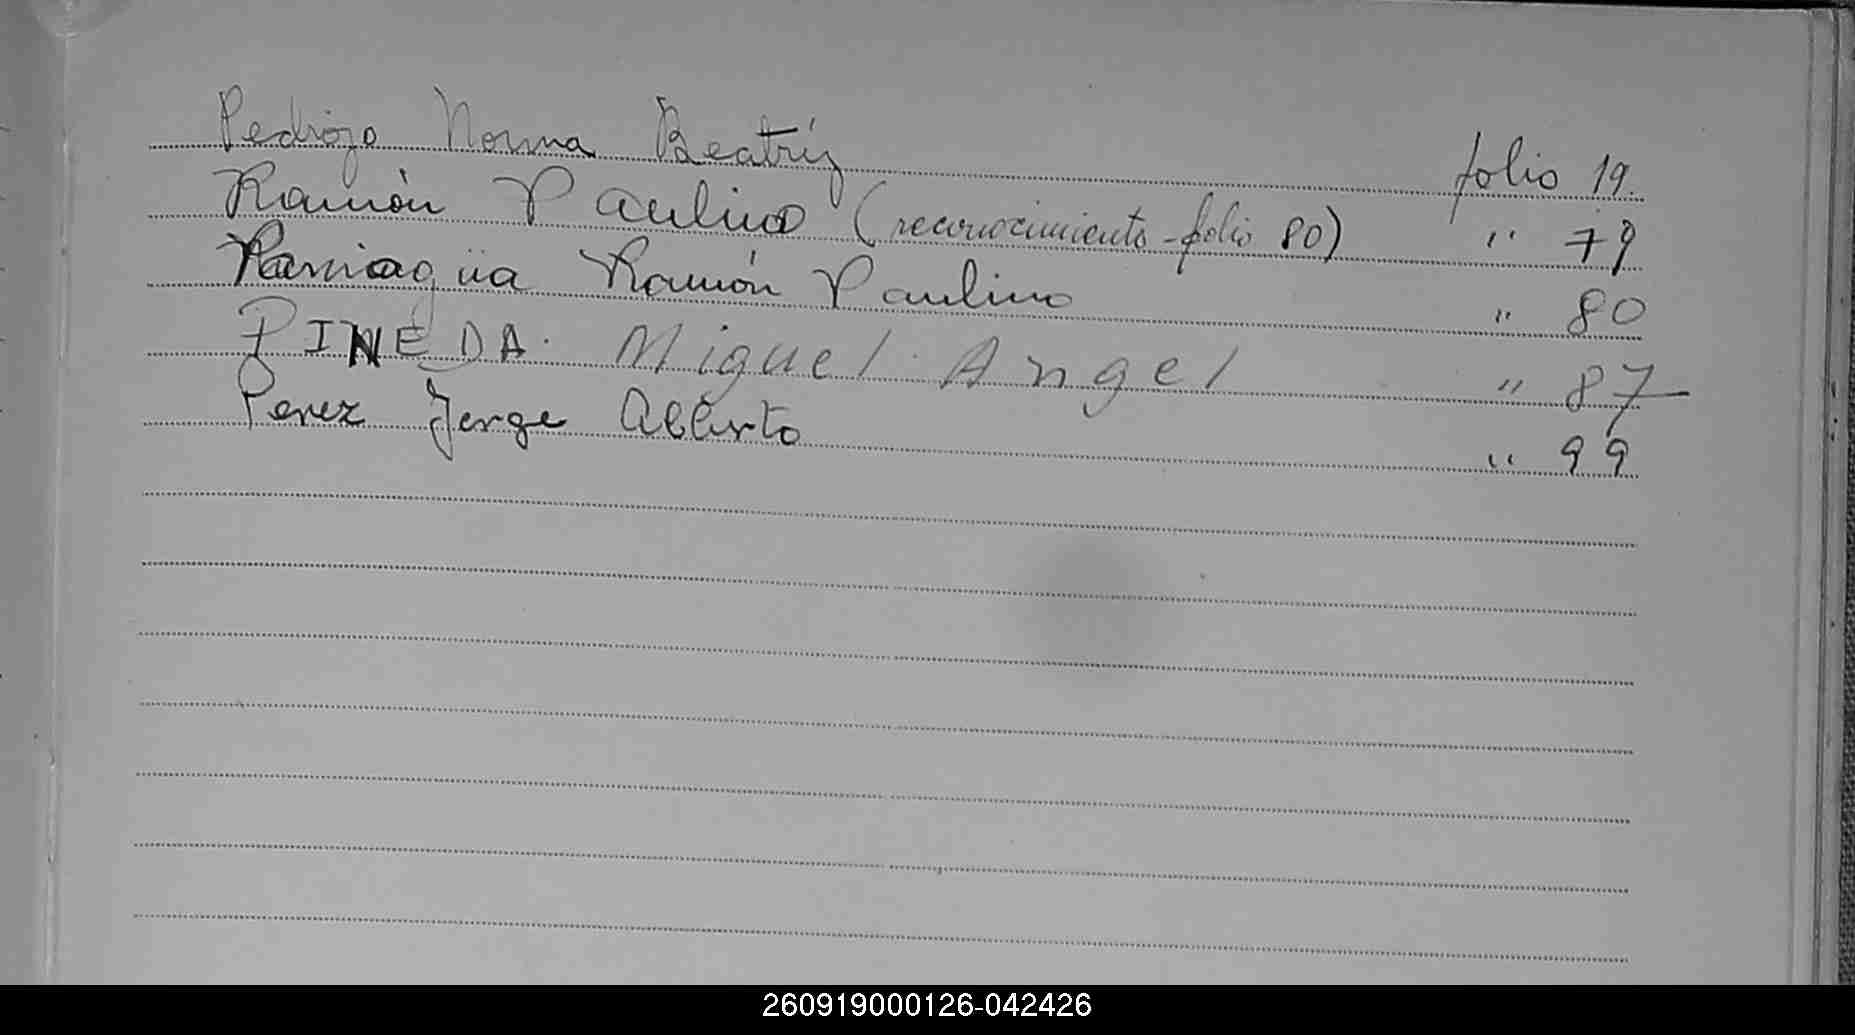 Pedrozo Norma Beatríz folio 19.
Ramón Paulino (reconocimiento - folio 80) " 79
Paniagüa Ramón Paulino " 80
PINEDA. Miguel Angel " 87
Perez Jorge Alberto " 99
260919000126-042426